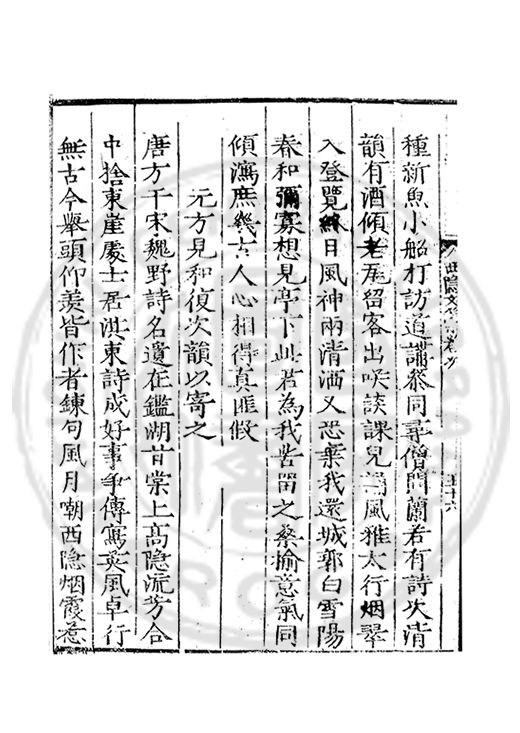 種新魚小船打訪道誦參同尋僧問蘭若有詩次清
韻有酒傾老瓦留客出咲談課兒誦風雅太行烟翠
入登覽終日風神兩清洒又恐棄我還城郭白雪陽
春和彌寡想見亭下此君為我苦留之桑揄意氣同
傾瀉庶幾古人心相得真匪假
元方見和復次韻以寄之
唐方干宋魏野詩名遺在鑑湖甘棠上高隐流芳合
中捨東崖處士居淇東詩成好事爭傳寫英風卓行
無古今舉頭仰羨皆作者鍊句風月嘲西隐烟霞惹